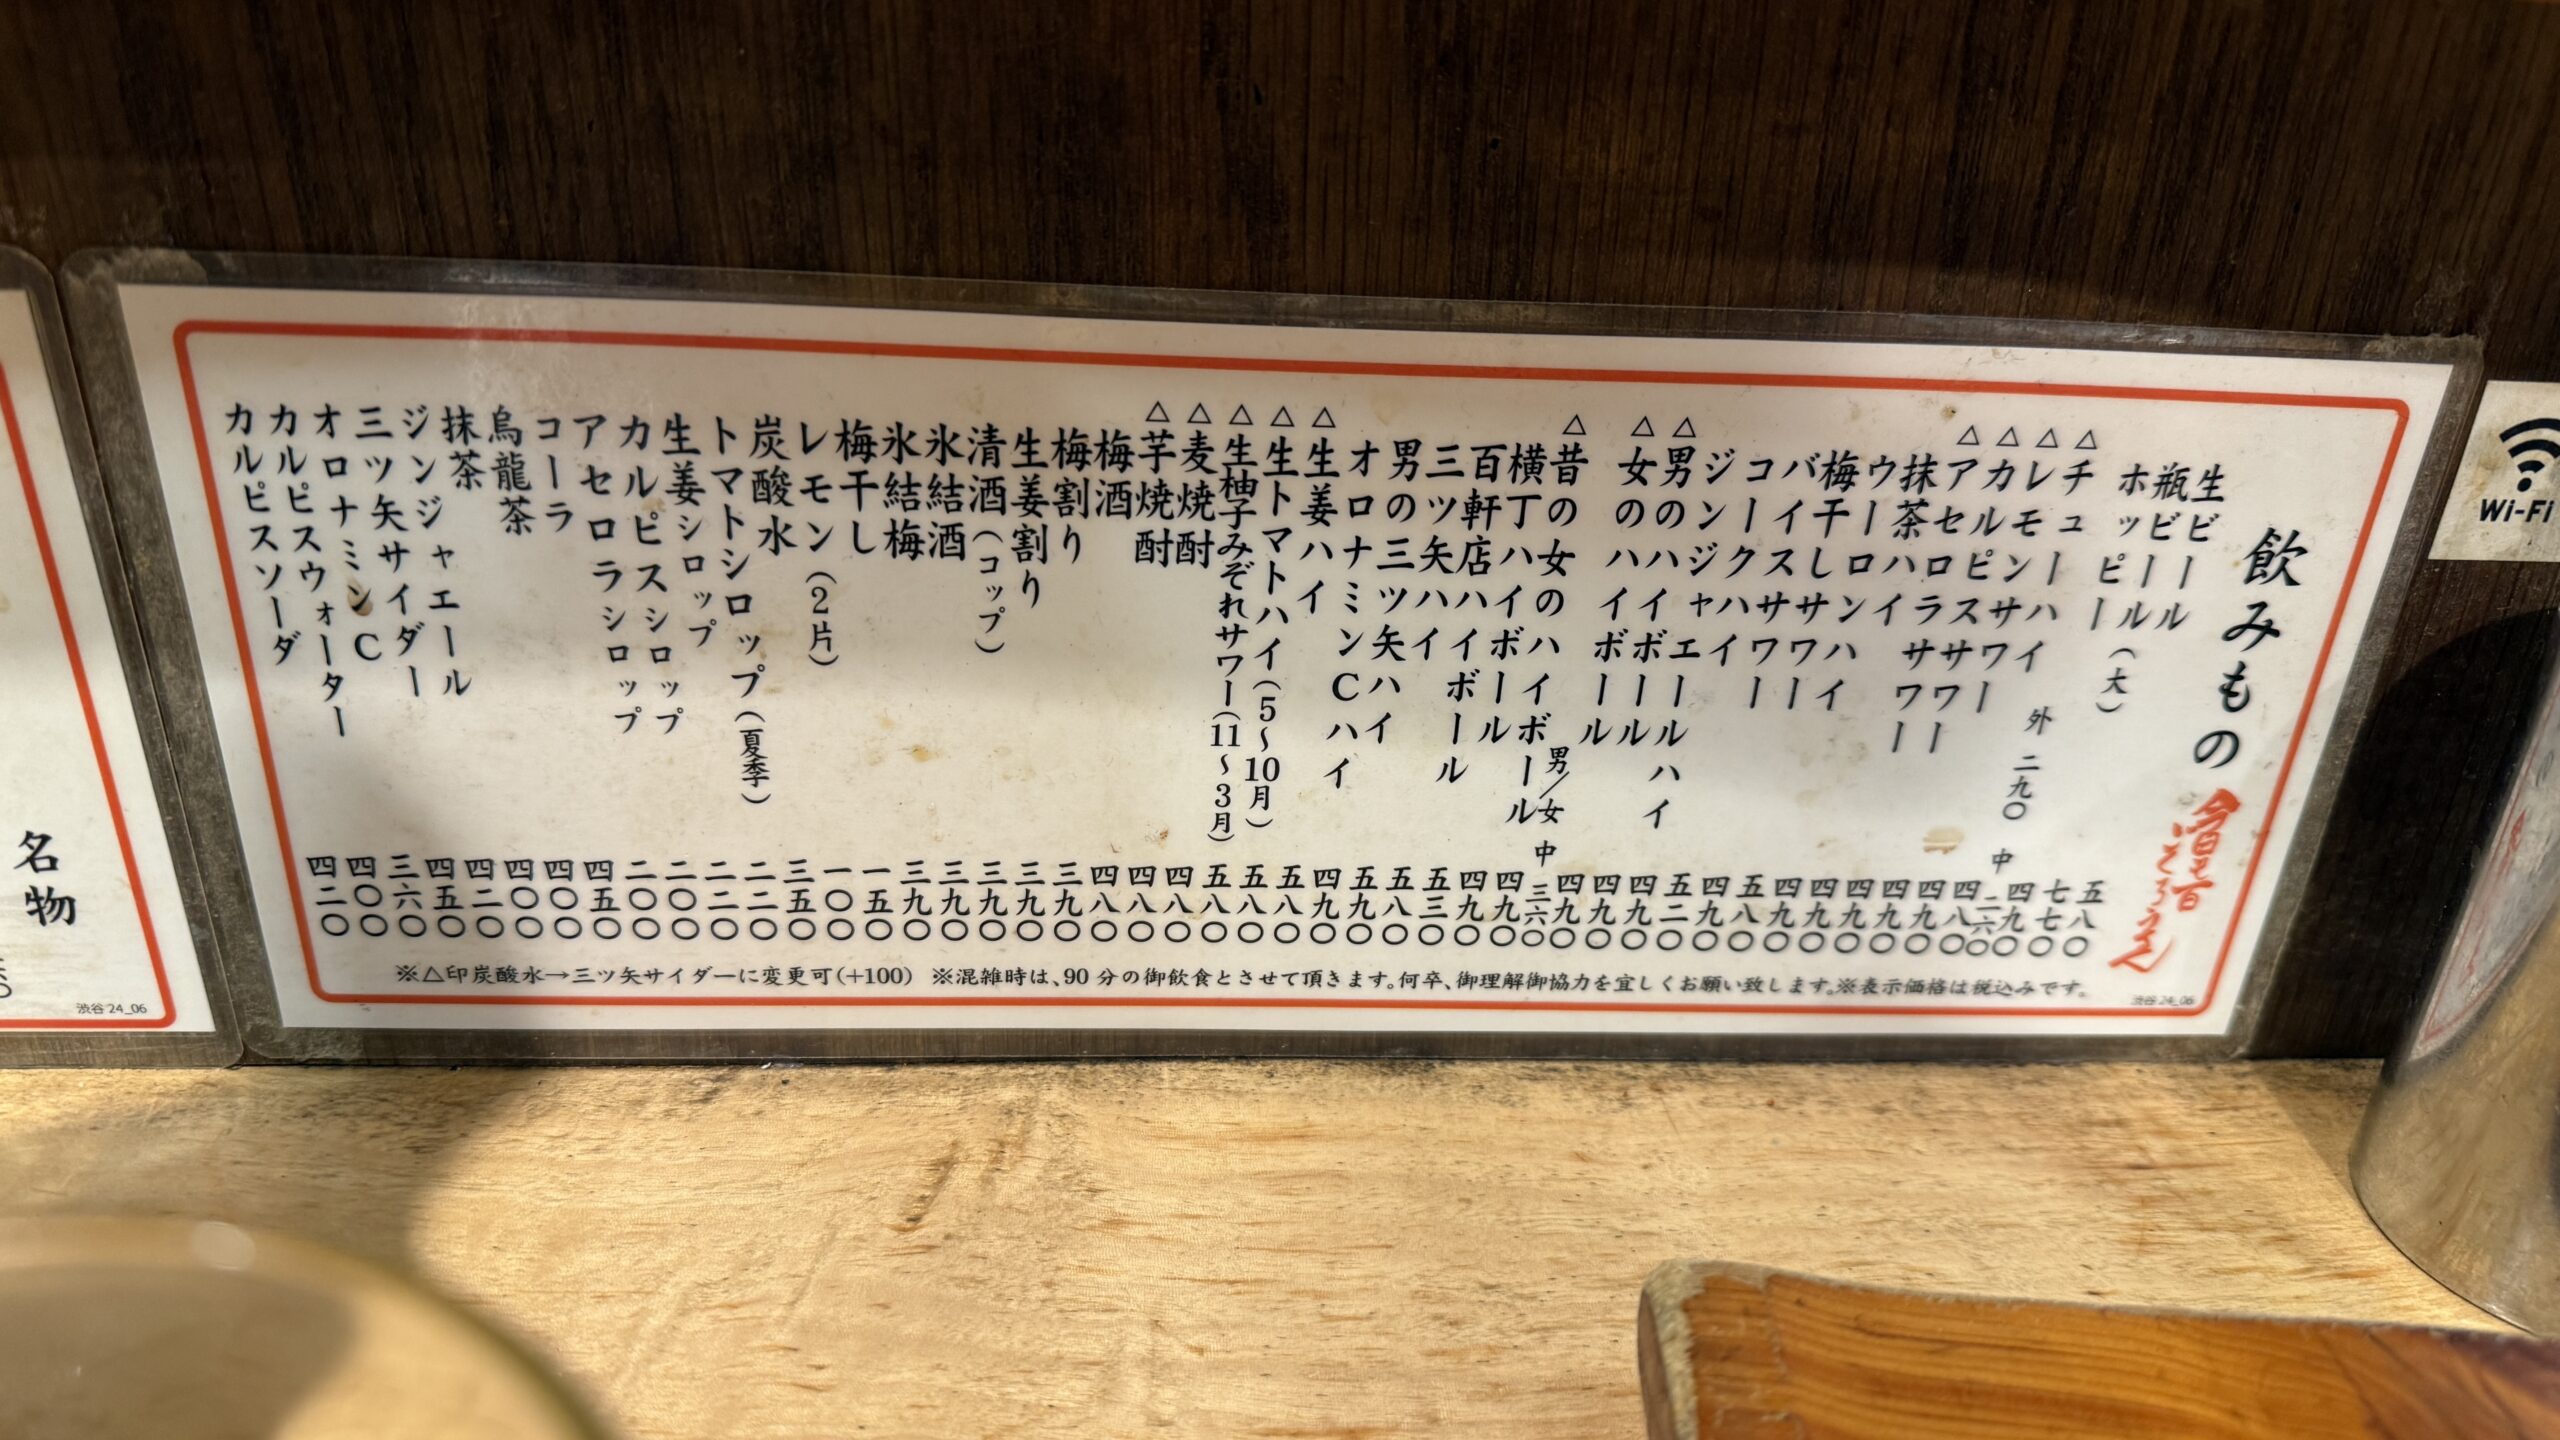 飲みもの
生ビール 五八〇
瓶ビール(大) 七七〇
ホッピー 四九〇
外 二九〇 中 二六〇
△チューハイ 四八〇
△レモンサワー 四九〇
△カルピスサワー 四九〇
△アセロラサワー 四九〇
抹茶ハイ 四九〇
ウーロンハイ 四九〇
梅干しサワー 五八〇
バイスサワー 四九〇
コークハイ 五二〇
ジンジャエールハイ 四九〇
△男のハイボール 四九〇
△女のハイボール 四九〇
男/女 中 三六〇
△昔の女のハイボール 四九〇
横丁ハイボール 四九〇
百軒店ハイボール 五三〇
三ツ矢ハイ 五八〇
男の三ツ矢ハイ 五九〇
オロナミンCハイ 四九〇
△生姜ハイ 五八〇
△生トマトハイ(5〜10月) 五八〇
△生柚子みぞれサワー(11〜3月) 五八〇
△麦焼酎 四八〇
△芋焼酎 四八〇
梅酒 四八〇
梅割り 三九〇
生姜割り 三九〇
清酒(コップ) 三九〇
氷結酒 三九〇
氷結梅 三九〇
梅干し 一五〇
レモン(2片) 一〇〇
炭酸水 三五〇
トマトシロップ(夏季) 二二〇
生姜シロップ 二二〇
カルピスシロップ 二〇〇
アセロラシロップ 二〇〇
コーラ 四五〇
烏龍茶 四〇〇
抹茶 四〇〇
ジンジャエール 四二〇
三ツ矢サイダー 四五〇
オロナミンC 三六〇
カルピスウォーター 四〇〇
カルピスソーダ 四二〇
※△印炭酸水→三ツ矢サイダーに変更可(+100) ※混雑時は、90分の御飲食とさせて頂きます。何卒、御理解御協力を宜しくお願い致します。※表示価格は税込みです。
渋谷24_06
名物
渋谷24_06
Wi-Fi